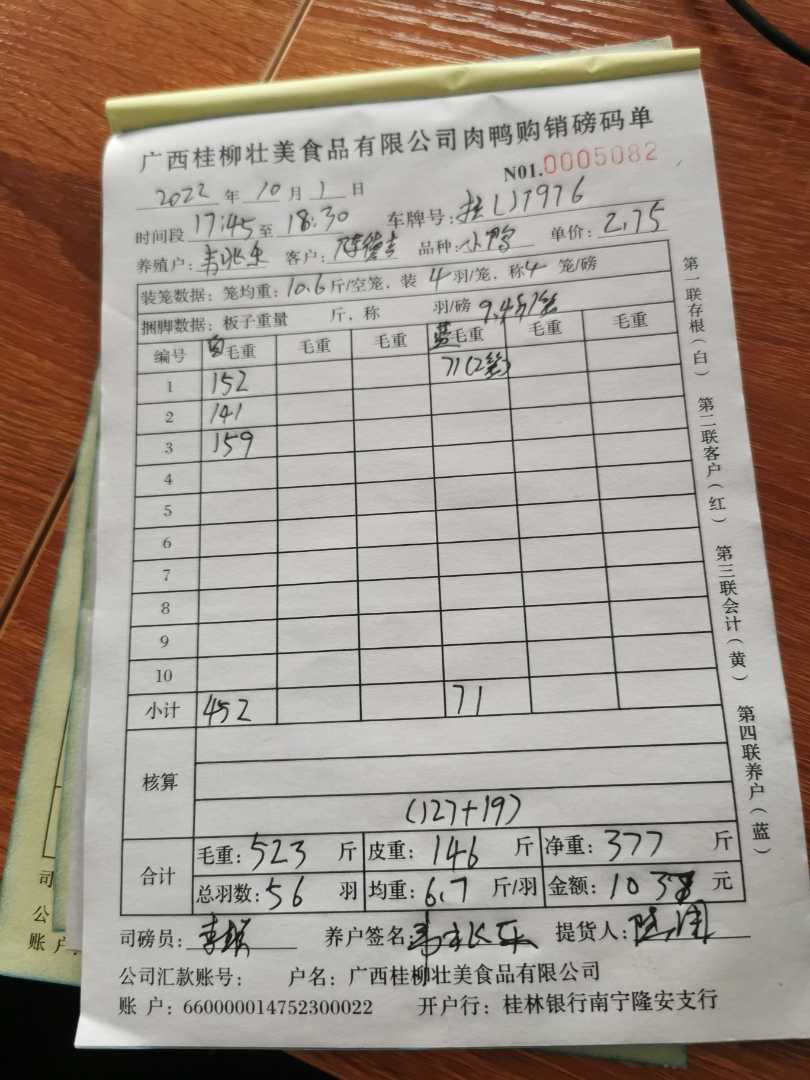 广西桂柳壮美食品有限公司肉鸭购销磅码单
N01.0005082
2022 年 10 月 1 日
时间段 17:45 至 18:30 车牌号:
养殖户: 客户: 品种:小鸭 单价:2.75
装笼数据:笼均重:10.6斤/空笼,装 4 羽/笼,称 4 笼/磅
捆脚数据:板子重量 斤,称 羽/磅 9.4斤/笼
编号 白毛重 毛重 毛重 蓝毛重 毛重 毛重
1 152 71(2笼)
2 141
3 159
4
5
6
7
8
9
10
小计 452 71
核算
(127+19)
合计 毛重:523 斤 皮重:146 斤 净重:377 斤
总羽数:56 羽 均重:6.7 斤/羽 金额:1038 元
司磅员: 养户签名: 提货人:
公司汇款账号: 户名:广西桂柳壮美食品有限公司
账 户:660000014752300022 开户行:桂林银行南宁隆安支行
第一联存根(白) 第二联客户(红) 第三联会计(黄) 第四联养户(蓝)
司
公
账 户